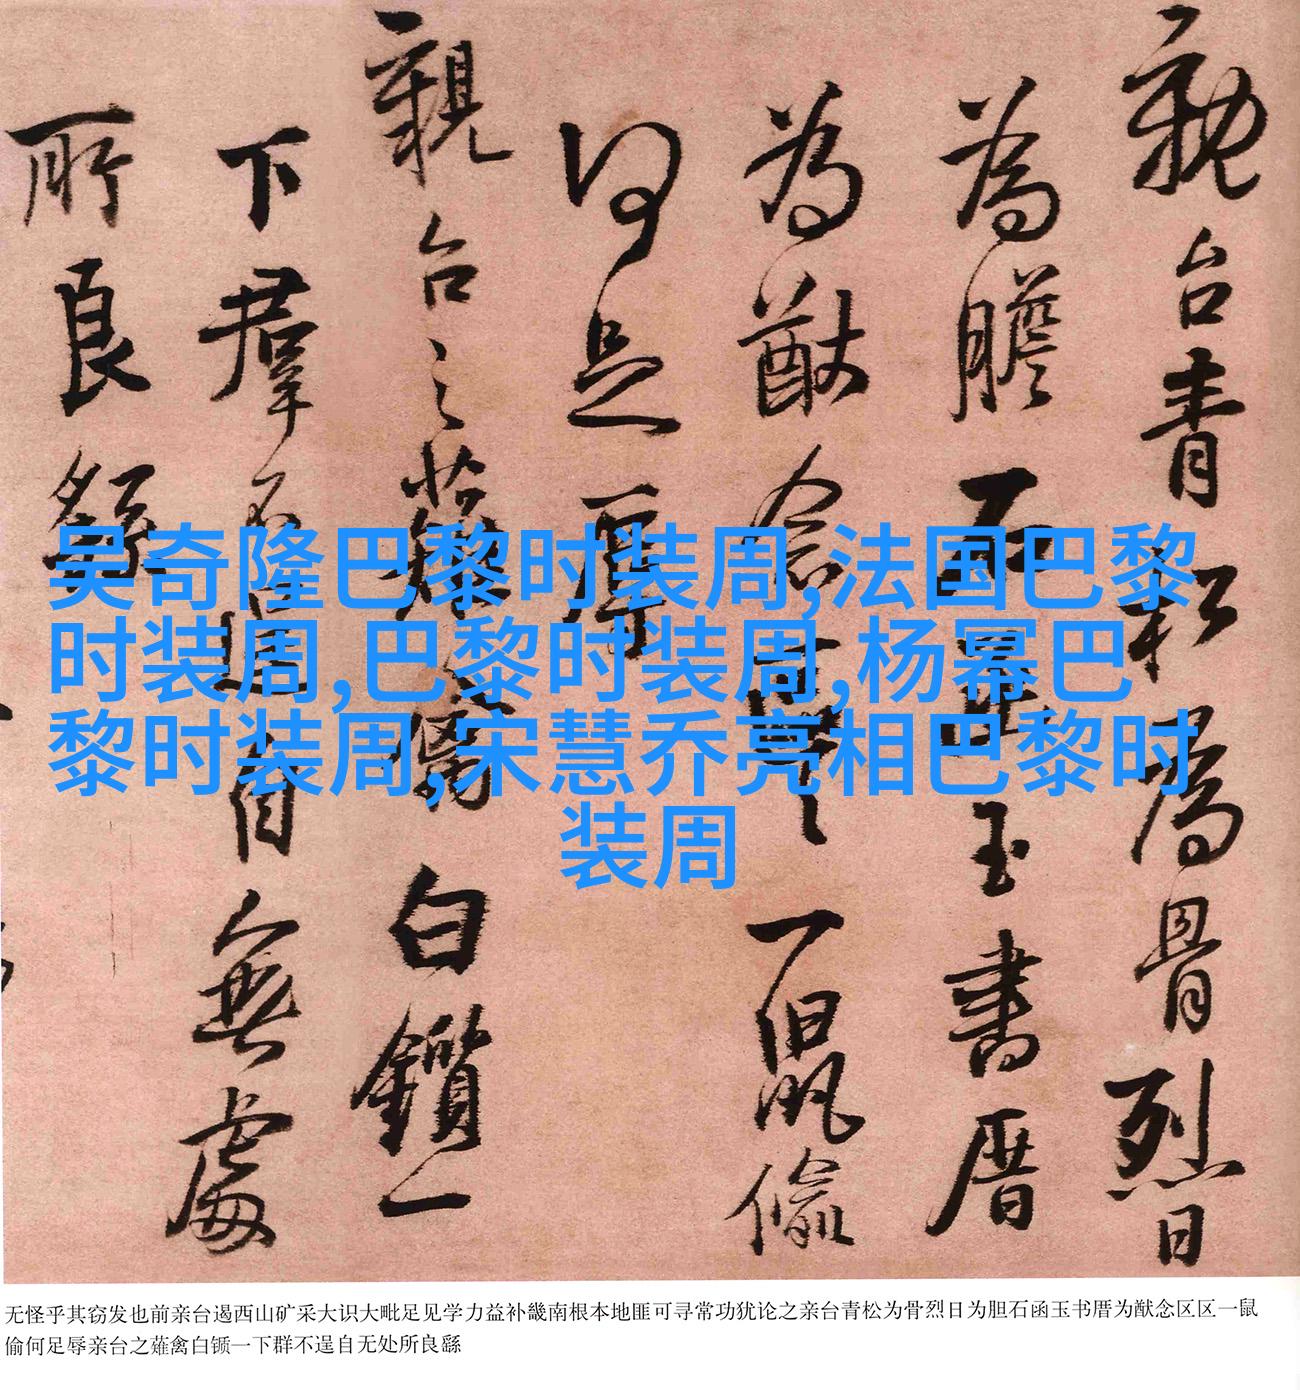 親台青松為骨烈日
為膽石函玉書厝
為猷念區區一鼠偷
何足辱
親台之薙禽白鑕一
下羣不逞自無處
所良繇
吴奇隆巴黎时装周,法国巴黎
时装周,巴黎时装周,杨幂巴
黎时装周,宋慧乔亮相巴黎时
装周
无怪乎其窃发也前亲台遏西山矿采大识大毗足见学力益补畿南根本地匪可寻常功犹论之亲台青松为骨烈日为胆石函玉书厝为猷念区区一鼠
偷何足辱亲台之薙禽白锧一下群不逞自无处所良繇